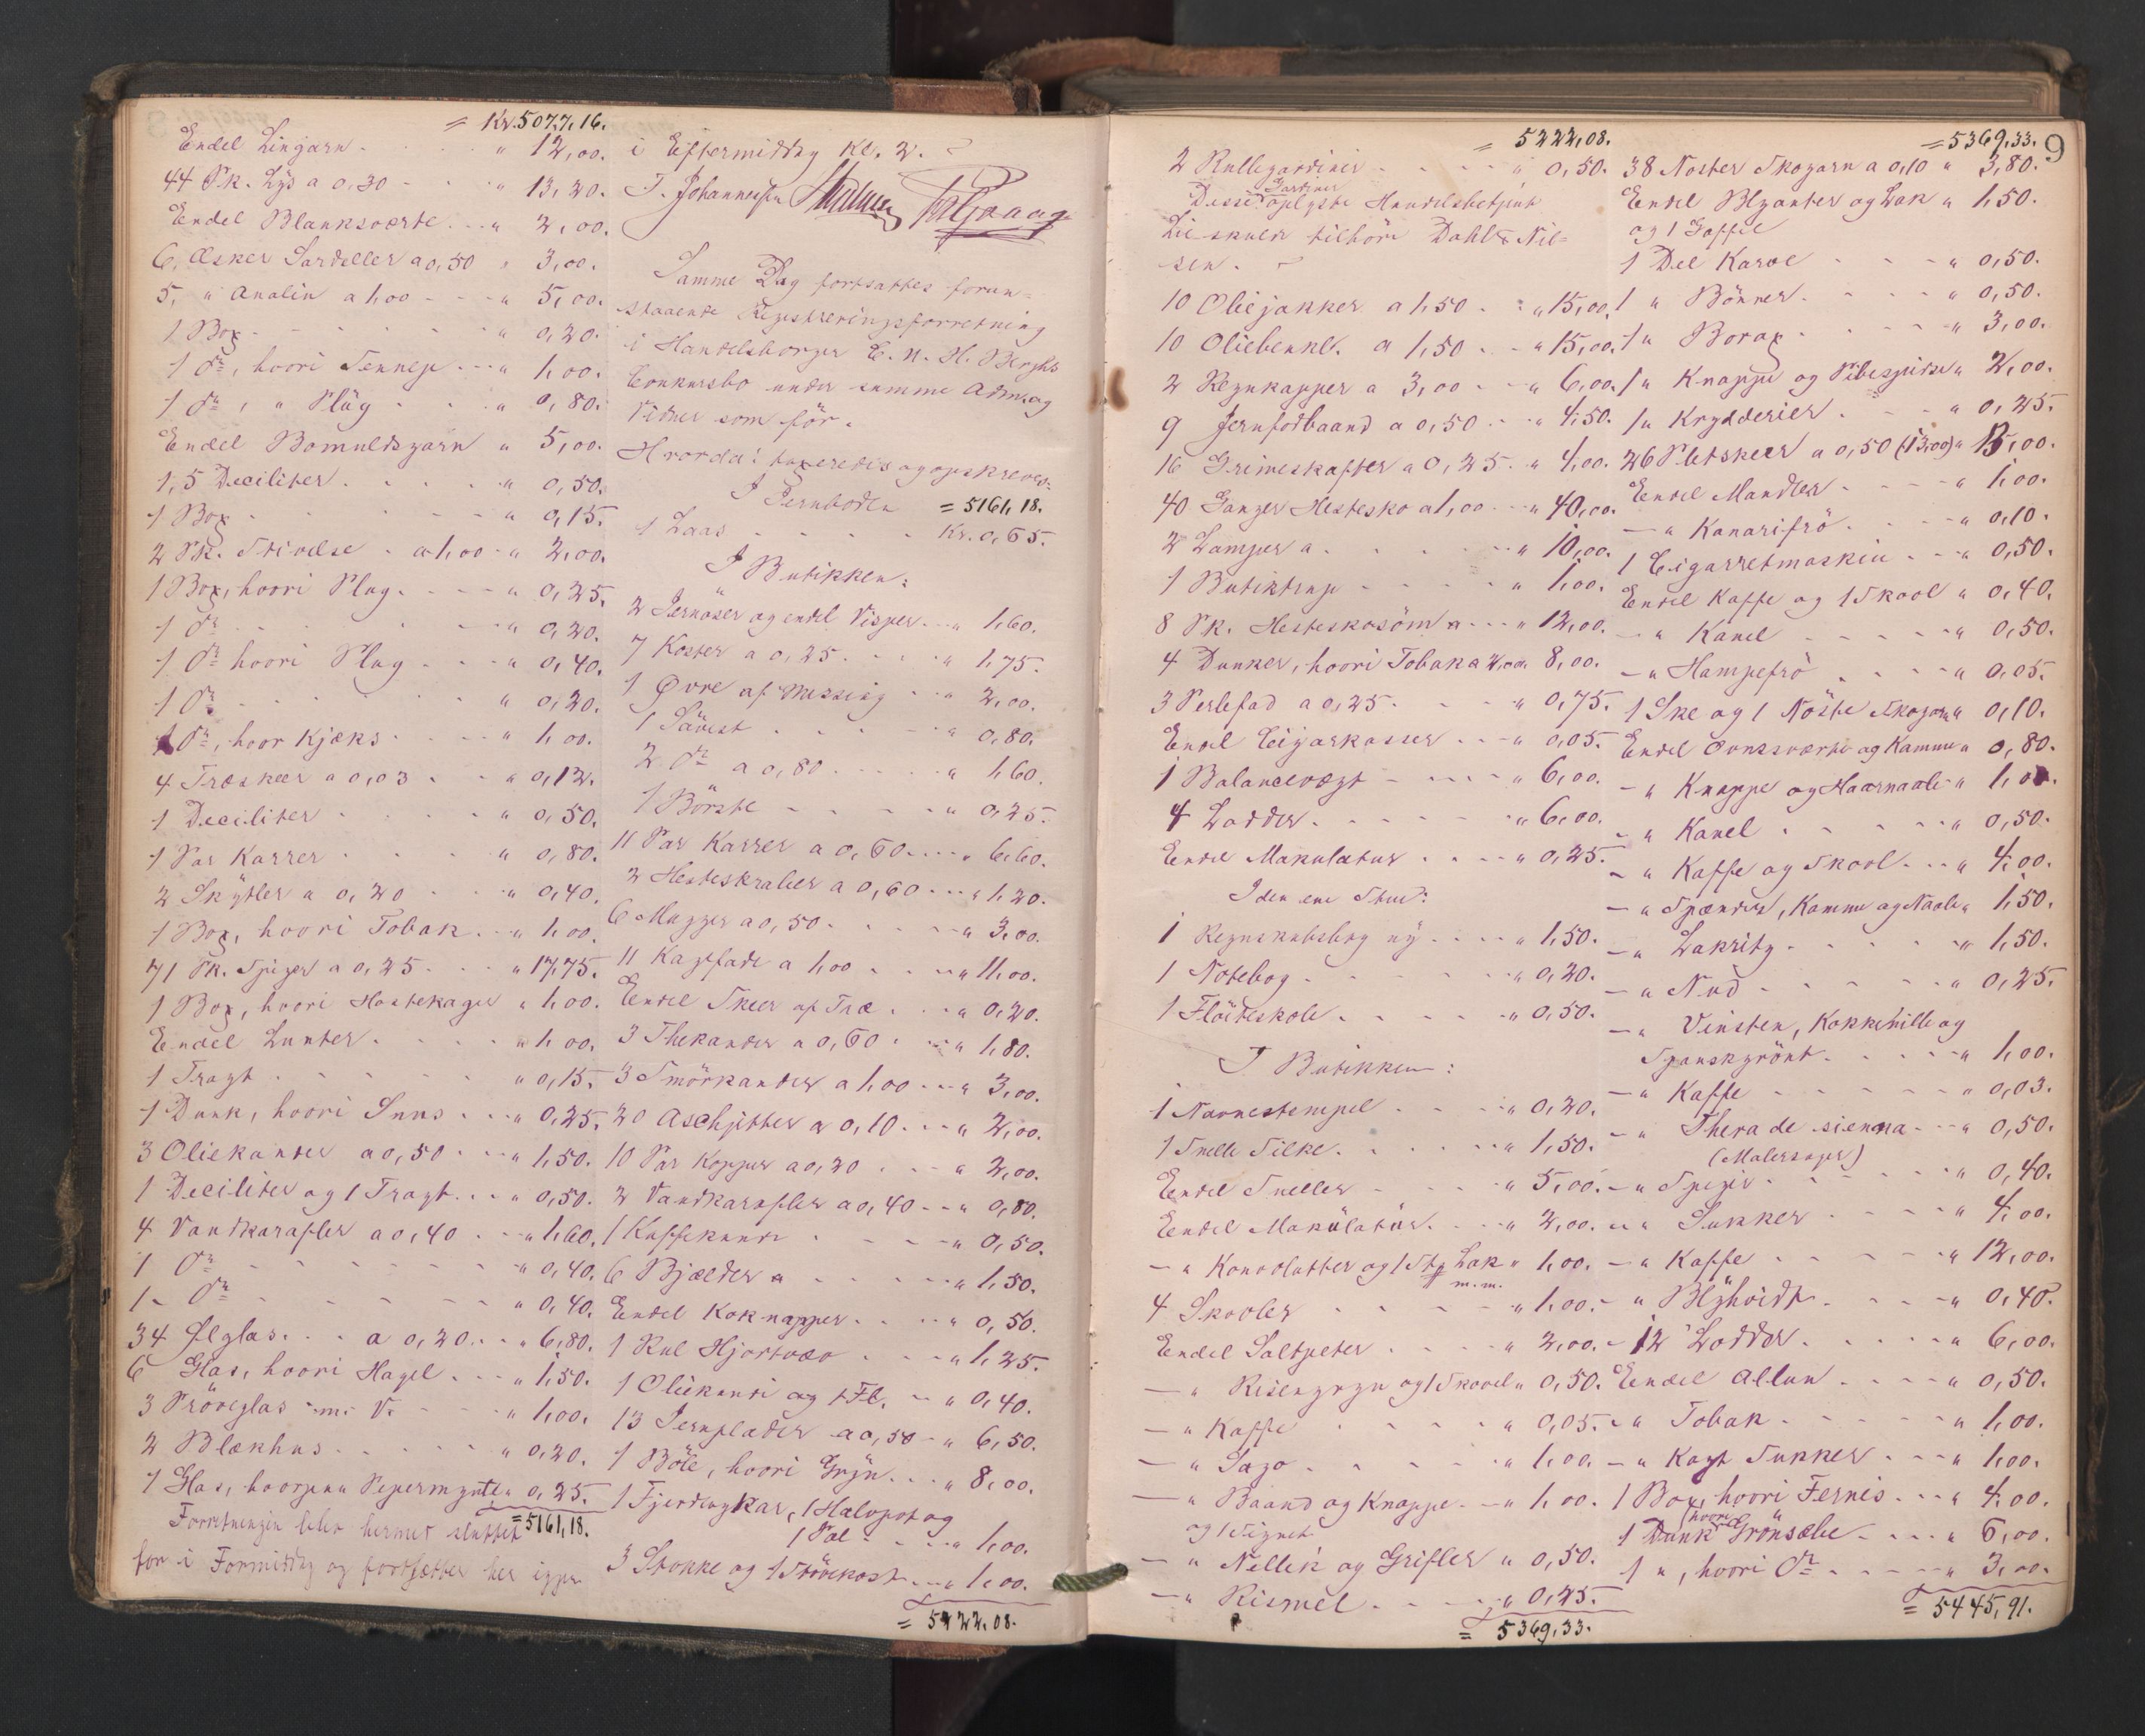 = Kr. 5077,16.
Endel Lingarn " 12,00.
44 Pk. Lys a 0,30 " 13,20.
Endel Blanksværte " 2,00.
6 Æsker Sardeller a 0,50 " 3,00.
5 " Analin a 1,00 " 5,00.
1 Box " 0,20.
1 do, hvori Sennep " 1,00.
1 do, " Plüg " 0,80.
Endel Bomuldsgarn " 5,00.
1,5 Deciliter " 0,50.
1 Box " 0,15.
2 Pk. Stivelse a 1,00 " 2,00.
1 Box, hvori Plug " 0,25.
1 do " 0,20.
1 do hvori Plug " 0,40.
1 do " 0,20.
1 do, hvor Kjæks " 1,00.
4 Træskeer a 0,03 " 0,12.
1 Deciliter " 0,50.
1 Par Karrer " 0,80.
2 Skÿtler a 0,20 " 0,40.
1 Box, hvori Tobak " 1,00.
71 Pk. Spiger a 0,25 " 17,75.
1 Box, hvori Hostekager " 1,00.
Endel Lunter " 1,00.
1 Tragt " 0,15.
1 Dunk, hvori Snus " 0,25.
3 Oliekander a 0,50 " 1,50.
1 Deciliter og 1 Tragt " 0,50.
4 Vandkarafler a 0,40 " 1,60.
1 do " 0,40.
1 - do " 0,40.
34 Ølglas a 0,20 " 6,80.
6 Glas, hvori Hagel " 1,50.
3 Pröveglas m. V. " 1,00.
2 Blækhus " 0,20.
1 Glas, hvorpaa Pepermynte " 0,25.
= 5161,18.
Forretningen blev hermed sluttet
for i Formiddag og fortsætter her igjen
i Eftermiddag Kl. 2.
J. Johannesen
Samme Dag fortsattes foran-
staaende Registreringsforretning
i Handelsborger C. N. H. Berghs
Conkursbo under samme Adm. og
Vidner som för.
Hvorda: taxeredes og opskreves:
I Jernboden = 5161,18.
1 Laas Kr. 0,65.
I Butikken:
2 Jernöser og endel Visper " 1,60.
7 Koster a 0,25 " 1,75.
1 Øvre af Messing " 2,00.
1 Säuest " 0,80.
2 do a 0,80 " 1,60.
1 Börste " 0,25.
11 Par Karrer a 0,60 " 6,60.
2 Hesteskraber a 0,60 " 1,20.
6 Mugger a 0,50 " 3,00.
11 Kagefade a 1,00 " 11,00.
Endel Skeer af Træ " 0,20.
3 Thekander a 0,60 " 1,80.
3 Smörkander a 1,00 " 3,00.
20 Aschjetter a 0,10 " 2,00.
10 Par Kopper a 0,20 " 2,00.
2 Vandkarafler a 0,40 " 0,80.
1 Kaffekande " 0,50.
6 Bjælder a " 1,50.
Endel Koknapper " 0,50.
1 Rul Hjortvæv " 1,25.
1 Oliekande og 1 Fl. " 0,40.
13 Jernplader a 0,50 " 6,50.
1 Böle, hvori Gryn " 8,00.
1 Fjerdingkar, 1 Halvpot og
1 Pæl " 1,00.
3 Stokke og 1 Stövekost " 1,00.
= 5222,08.
9
= 5222,08.
2 Rullegardiner " 0,50.
Disse Gardiner oplyste Handelsbetjent
Lie skulde tilhöre Dahl & Nil=
sen.
10 Oliejakker a 1,50 " 15,00.
10 Oliebenkl. a 1,50 " 15,00.
2 Regnkapper a 3,00 " 6,00.
9 Jernfodbaand a 0,50 " 4,50.
16 Grimeskafter a 0,25 " 4,00.
40 Ganger Hestesko a 1,00 " 40,00.
2 Lamper a " 10,00.
1 Butiktrap " 1,00.
8 Pk. Hesteskosöm a " 12,00.
4 Dunker, hvori Tobak a 2,00 " 8,00.
3 Perlefad a 0,25 " 0,75.
Endel Cigarkasser " 0,05.
1 Balancevægt " 6,00.
4 Lodder " 6,00.
Endel Makulatur " 0,25.
I den ene Stue:
1 Regnskabsbog ny " 1,50.
1 Notebog " 0,20.
1 Flöiteskole " 0,50.
I Butikken:
1 Navnestempel " 0,20.
1 Snelle Silke " 1,50.
Endel Sneller " 5,00.
Endel Makülatür " 2,00.
- " Konvolutter og 1 St. Lak m.m. " 1,00.
4 Skovler " 1,00.
Endel Saltpeter " 2,00.
- " Risengryn og 1 Skovel " 0,50.
- " Kaffe " 0,05.
- " Sago " 1,00.
- " Baand og Knappe " 1,00.
og 1 Signet
- " Nellik og Grifler " 0,50.
- " Rismel " 0,25.
= 5369,33.
= 5369,33.
38 Nöster Skogarn a 0,10 " 3,80.
Endel Blyanter og Lak " 1,50.
og 1 Gaffel
1 Del Karve " 0,50.
1 " Bönner " 0,50.
1 " Borax " 3,00.
1 " Knappe og Pibespidse " 2,00.
1 " Krydderier " 0,25.
26 Pletskeer a 0,50 (13,00) " 13,00.
Endel Mandler " 1,00.
- " Kanarifrö " 0,10.
1 Cigarretmaskin " 0,50.
Endel Kaffe og 1 Skovl " 0,40.
- " Kanel " 0,50.
- " Hampefrö " 0,05.
1 Ske og 1 Nöste Skogarn " 0,10.
Endel Ovnssværte og Kamme " 0,80.
- " Knappe og Haarnaale " 1,00.
- " Kanel " 0,50.
- " Kaffe og Skovl " 4,00.
- " Spænder, Kamme og Naale " 1,50.
- " Lakrits " 1,50.
- " Nud " 0,25.
- " Vinsten, Kokkenille og
Spanskgrönt " 1,00.
- " Kaffe " 0,03.
- " Thera de sienna " 0,50.
(Malersager)
- " Spiger " 0,40.
- " Sukker " 4,00.
- " Kaffe " 12,00.
- " Blÿhvidt " 0,40.
- 12 Lodder " 6,00.
Endel Allun " 0,50.
- " Tobak " 1,00.
- " Kagt Sukker " 1,00.
1 Box, hvori Fernis " 4,00.
1 Dunk hvori Grönsæbe " 6,00.
1 ", hvori do " 3,00.
= 5445,91.